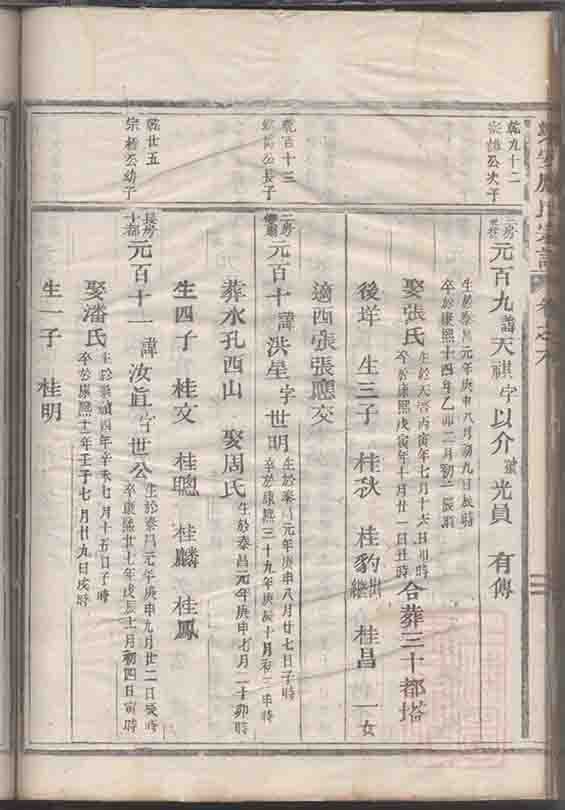 氏宗譜 卷之六
乾九十二
公次子
二房
元百九諱天祺字以介號光員 有傳
生於泰昌元年庚申八月初九日辰時
卒於康熙十四年乙卯二月初二辰時
娶張氏
生於天啓丙寅年七月十六日卯時
卒於康熙戊寅年十月廿一日丑時
合葬三十都塔
後垟 生三子 桂秋 桂豹出繼 桂昌 一女
適西張張聰交
乾百十三
公長子
二房
元百十諱洪星字世明
生於泰昌元年庚申八月廿七日子時
卒於康熙三十九年庚辰十月初三申時
葬水孔西山 娶周氏
生於泰昌元年庚申七月二十卯時
生四子 桂文 桂聰 桂麟 桂鳳
乾廿五
宗 公幼子
長房
十都
元百十一諱汝眞字世公
生於泰昌元年庚申九月廿二日亥時
卒康熙廿七年戊辰十一月初四日寅時
娶潘氏
生於崇禎四年辛未七月十五日子時
卒於康熙十一年壬子七月廿九日戌時
生一子 桂明